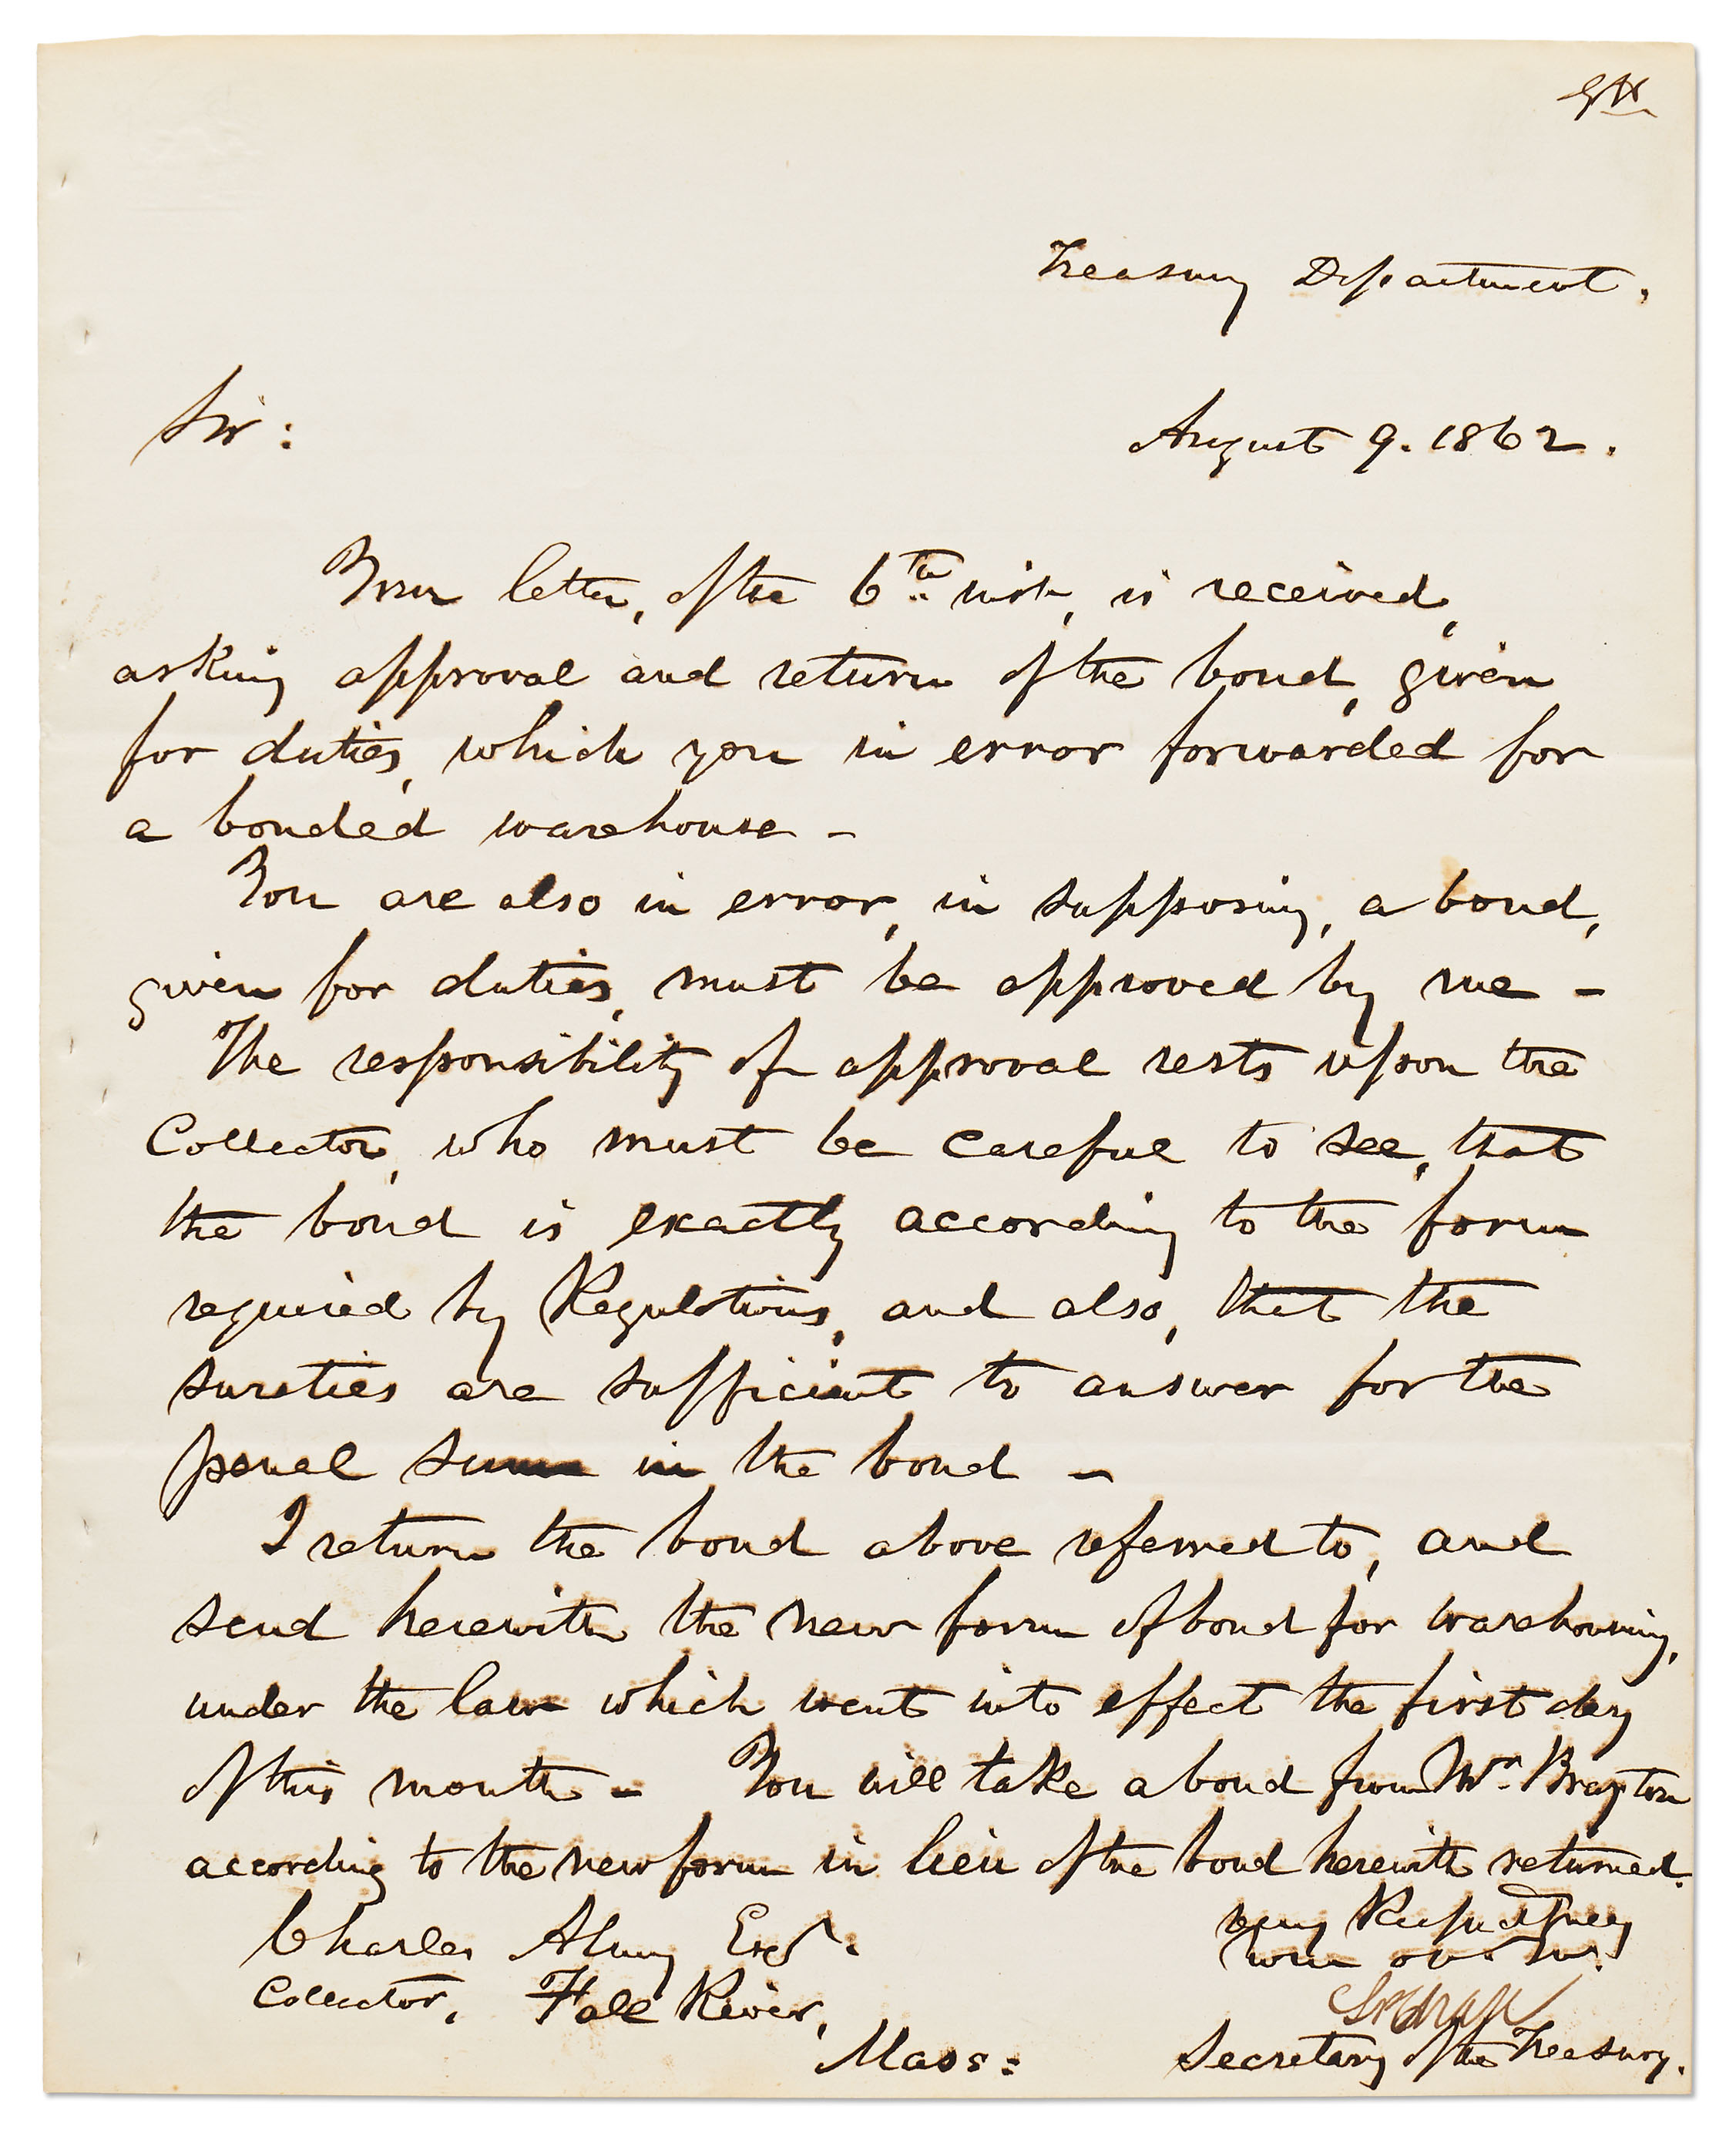 Treasury Department.
Sir:
August 9. 1862.
Your letter, of the 6th inst, is received,
asking approval and return of the bond, given
for duties, which you in error forwarded for
a bonded warehouse -
You are also in error, in supposing, a bond,
given for duties, must be approved by me -
The responsibility of approval rests upon the
Collector, who must be careful to see, that
the bond is exactly according to the form
required by Regulations, and also, that the
sureties are sufficient to answer for the
penal sum in the bond -
I return the bond above referred to, and
send herewith the new form of bond for warehousing,
under the law which went into effect the first day
of this month - You will take a bond from Mr. Brayton
according to the new form in lieu of the bond herewith returned.
Very Respectfully
Your ob. Sv.
Charles Almy Esqr.
Collector, Fall River,
Mass:
SPChase
Secretary of the Treasury.